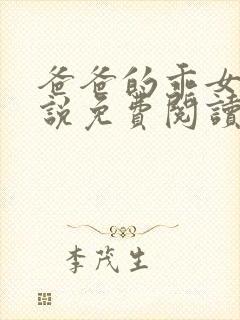 爸爸的乖女
說免費閱讀
李茂生